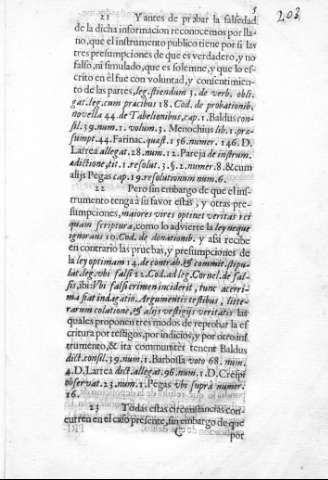 5
203
21 Y antes de probar la falsedad
de la dicha informacion reconocemos por lla-
no, que el instrumento publico tiene por si las
tres presumpciones de que es verdadero, y no
falso, ni simulado, que es solemne, y que lo es-
crito en èl fue con voluntad, y consentimien-
to de las partes, leg. stiendum 3. de verb. obli-
gat. leg. cum precibus 18. Cod. de probationib.
novella 44. de Tabelionibus, cap. 1. Baldus con-
sil. 39. num. 1. volum. 3. Menochius lib. 3. pre-
sumpt. 44. Farinac. quæst. 156. num. 1. D.
Larrea allegat. 28. num. 12. Pareja de instrum.
addictione, tit. 1. resolut. 3. §. 2. numer. 8. & cum
alijs Pegas cap. 19. resolutionum num. 6.
22 Pero sin embargo de que el ins-
trumento tenga à su favor estas, y otras pre-
sumpciones, maiores vires optinet veritas rei
quam scriptura, como lo advierte la ley neque
ignorans 10. Cod. de donationib. y assi recibe
en contrario las pruebas, y presumpciones de
la ley optimam 14. de contrah. & commit. stipu-
lat. leg. ubi falsi 22. Cod. ad leg. Cornel. de fal-
sis, ibi: Vbi falsi crimen inciderit, tunc acerri-
ma fiat indagatio. Argumentis testibus, litte-
rarum colatione, & alijs vestigijs veritatis las
quales proponen tres modos de reprobar la es-
critura por testigos, por indicios, y por otro ins-
trumento, & ita communiter tenent Baldus
dict. consil. 39. num. 1. Barbossa voto 68. num.
4. D. Larrea dict. allegat. 96. num. 1. D. Crespi
observat. 23. num. 1. Pegas ubi suprà numer.
16.
23 Todas estas circunstancias con-
curren en el caso presente, sin embargo de que
C por